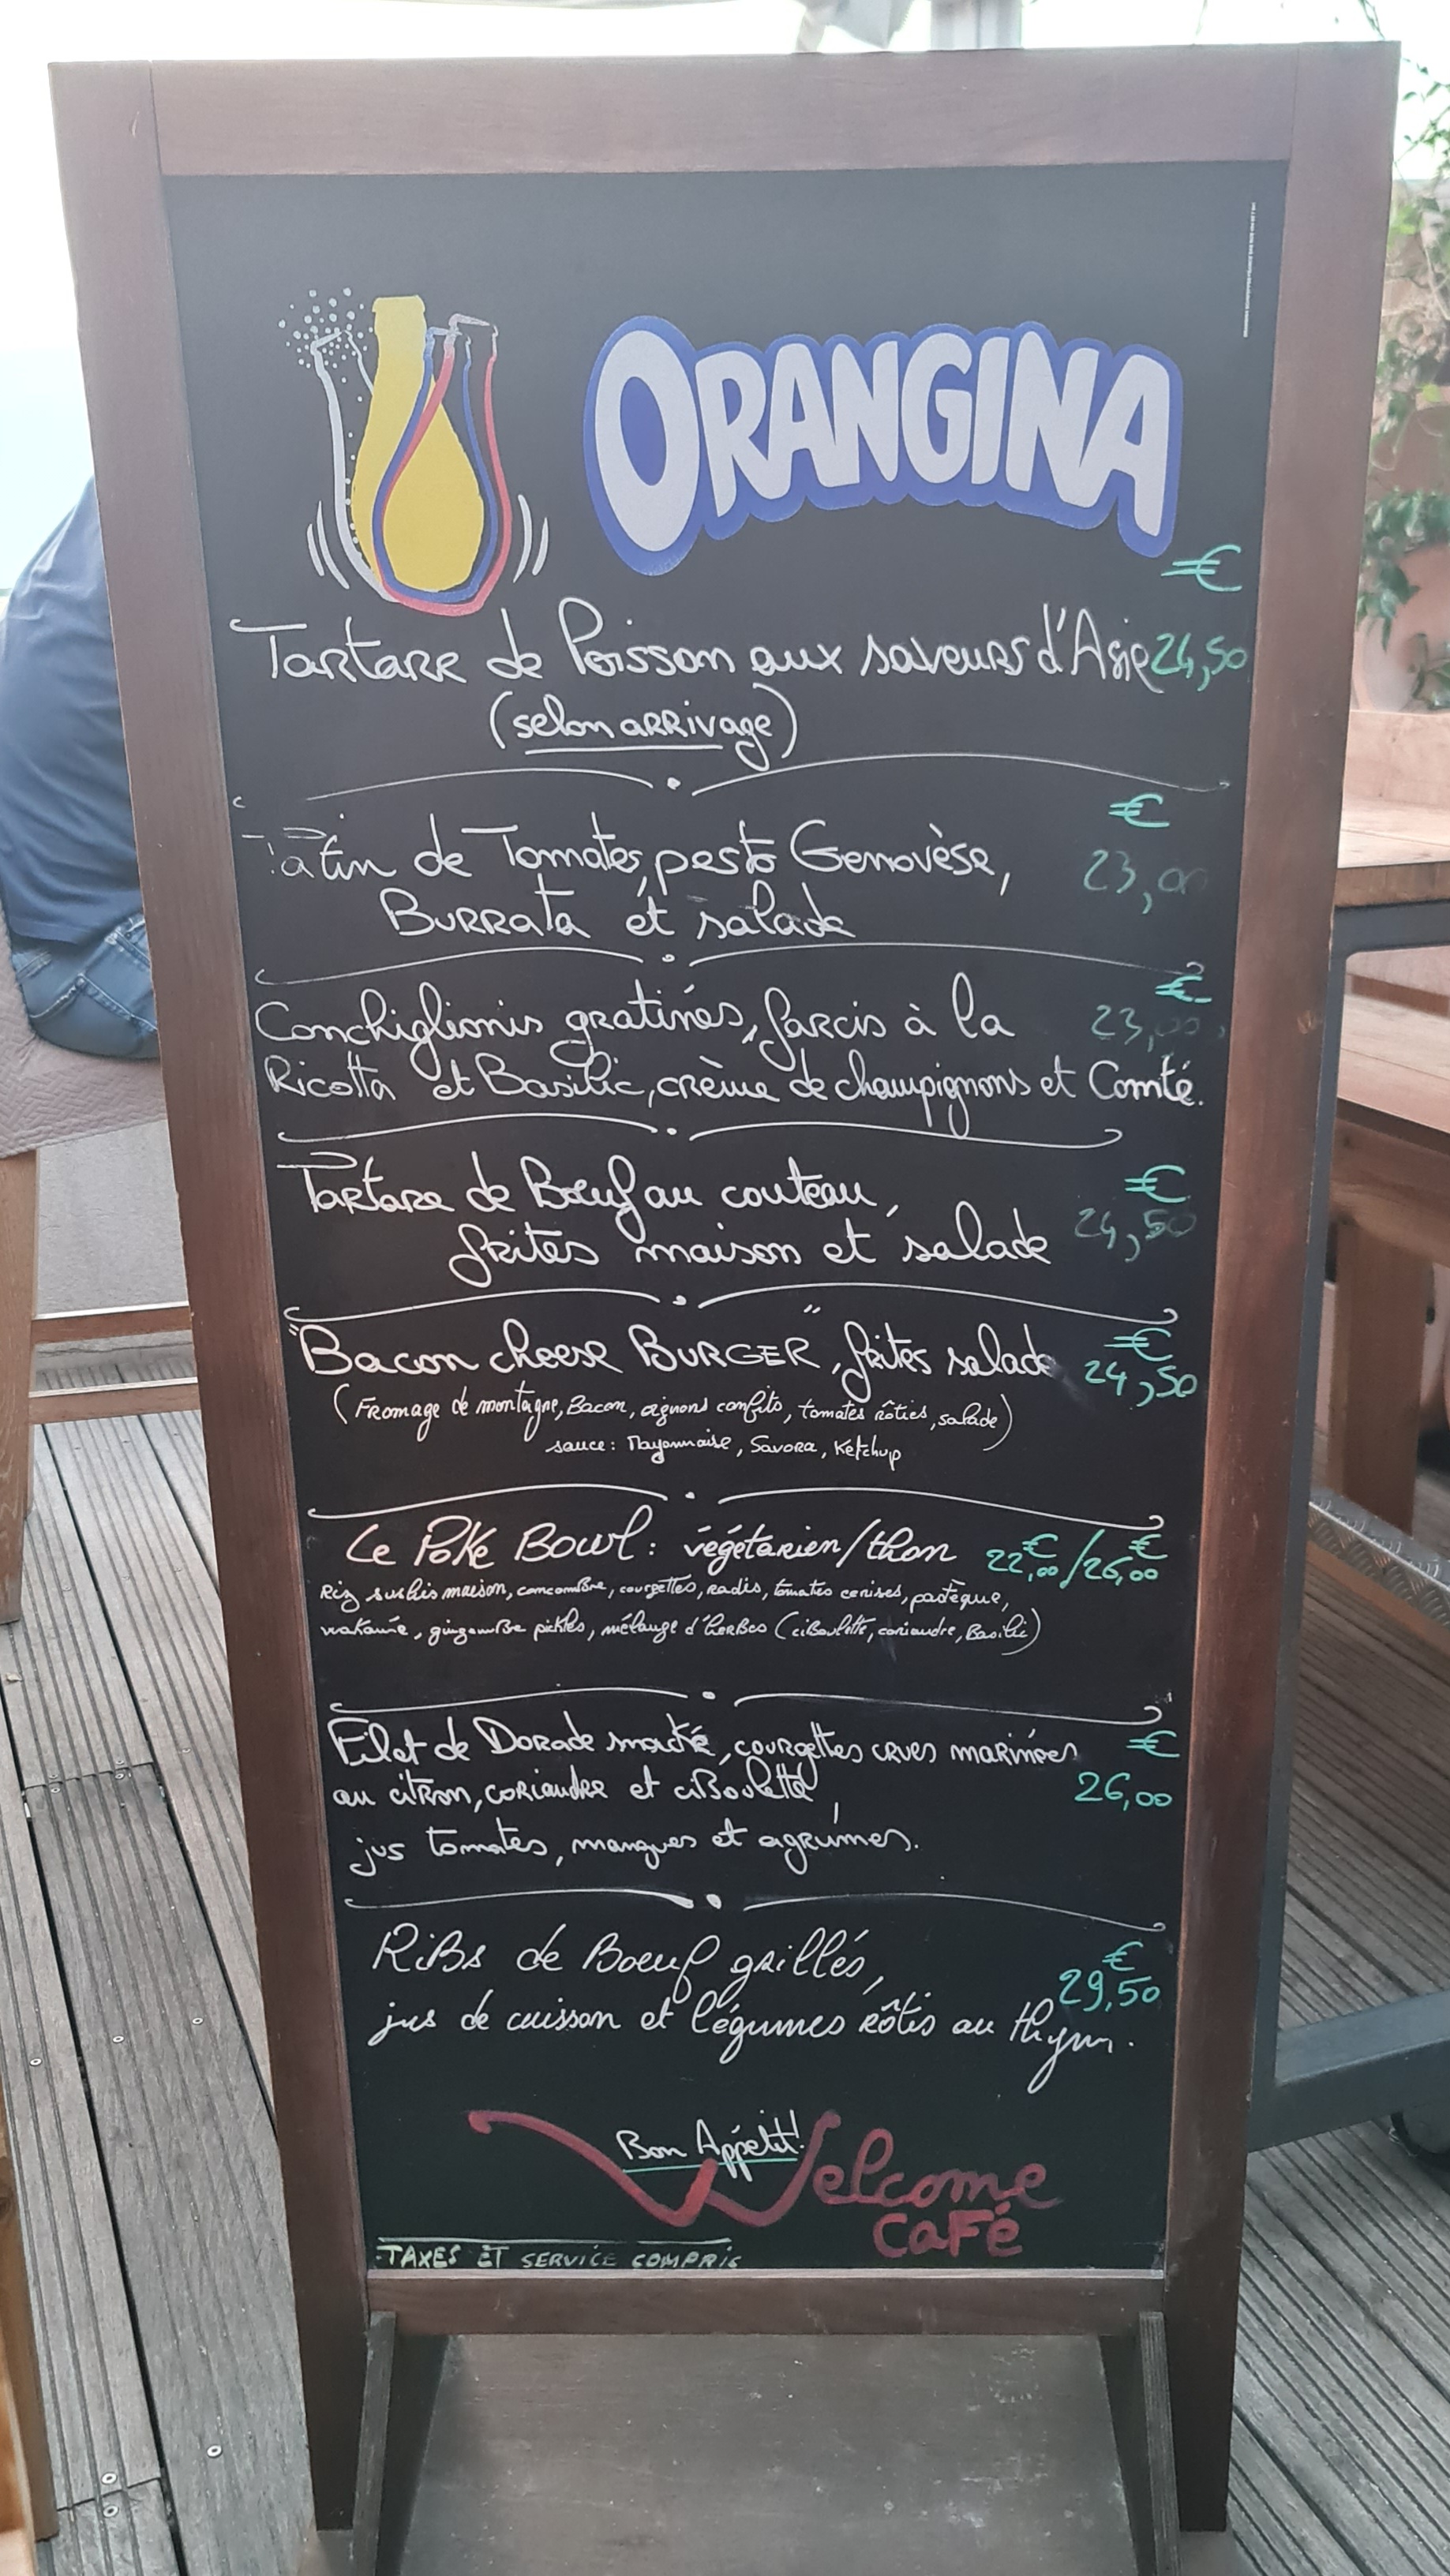 ORANGINA
€
Tartare de Poisson aux saveurs d'Asie 24,50
(selon arrivage)
€
Tatin de Tomates, pesto Genovèse, 23,00
Burrata et salade
€
Conchiglionis gratinés, farcis à la 23,00
Ricotta et Basilic, crème de champignons et Comté.
€
Tartare de Boeuf au couteau, 24,50
frites maison et salade
€
"Bacon cheese BURGER", frites salade 24,50
(Fromage de montagne, Bacon, oignons confits, tomates rôties, salade)
sauce: Mayonnaise, Savora, Ketchup
Le Poké Bowl: végétarien/thon 22,00€/26,00€
Riz sushis maison, concombre, courgettes, radis, tomates cerises, pastèque,
wakamé, gingembre pickles, mélange d'herbes (ciboulette, coriandre, Basilic)
Filet de Dorade snacké, courgettes crues marinées €
au citron, coriandre et ciboulette, 26,00
jus tomates, mangues et agrumes.
Ribs de Boeuf grillés, €
29,50
jus de cuisson et légumes rôtis au thym.
Bon Appétit!
Welcome
Café
TAXES ET SERVICE COMPRIS